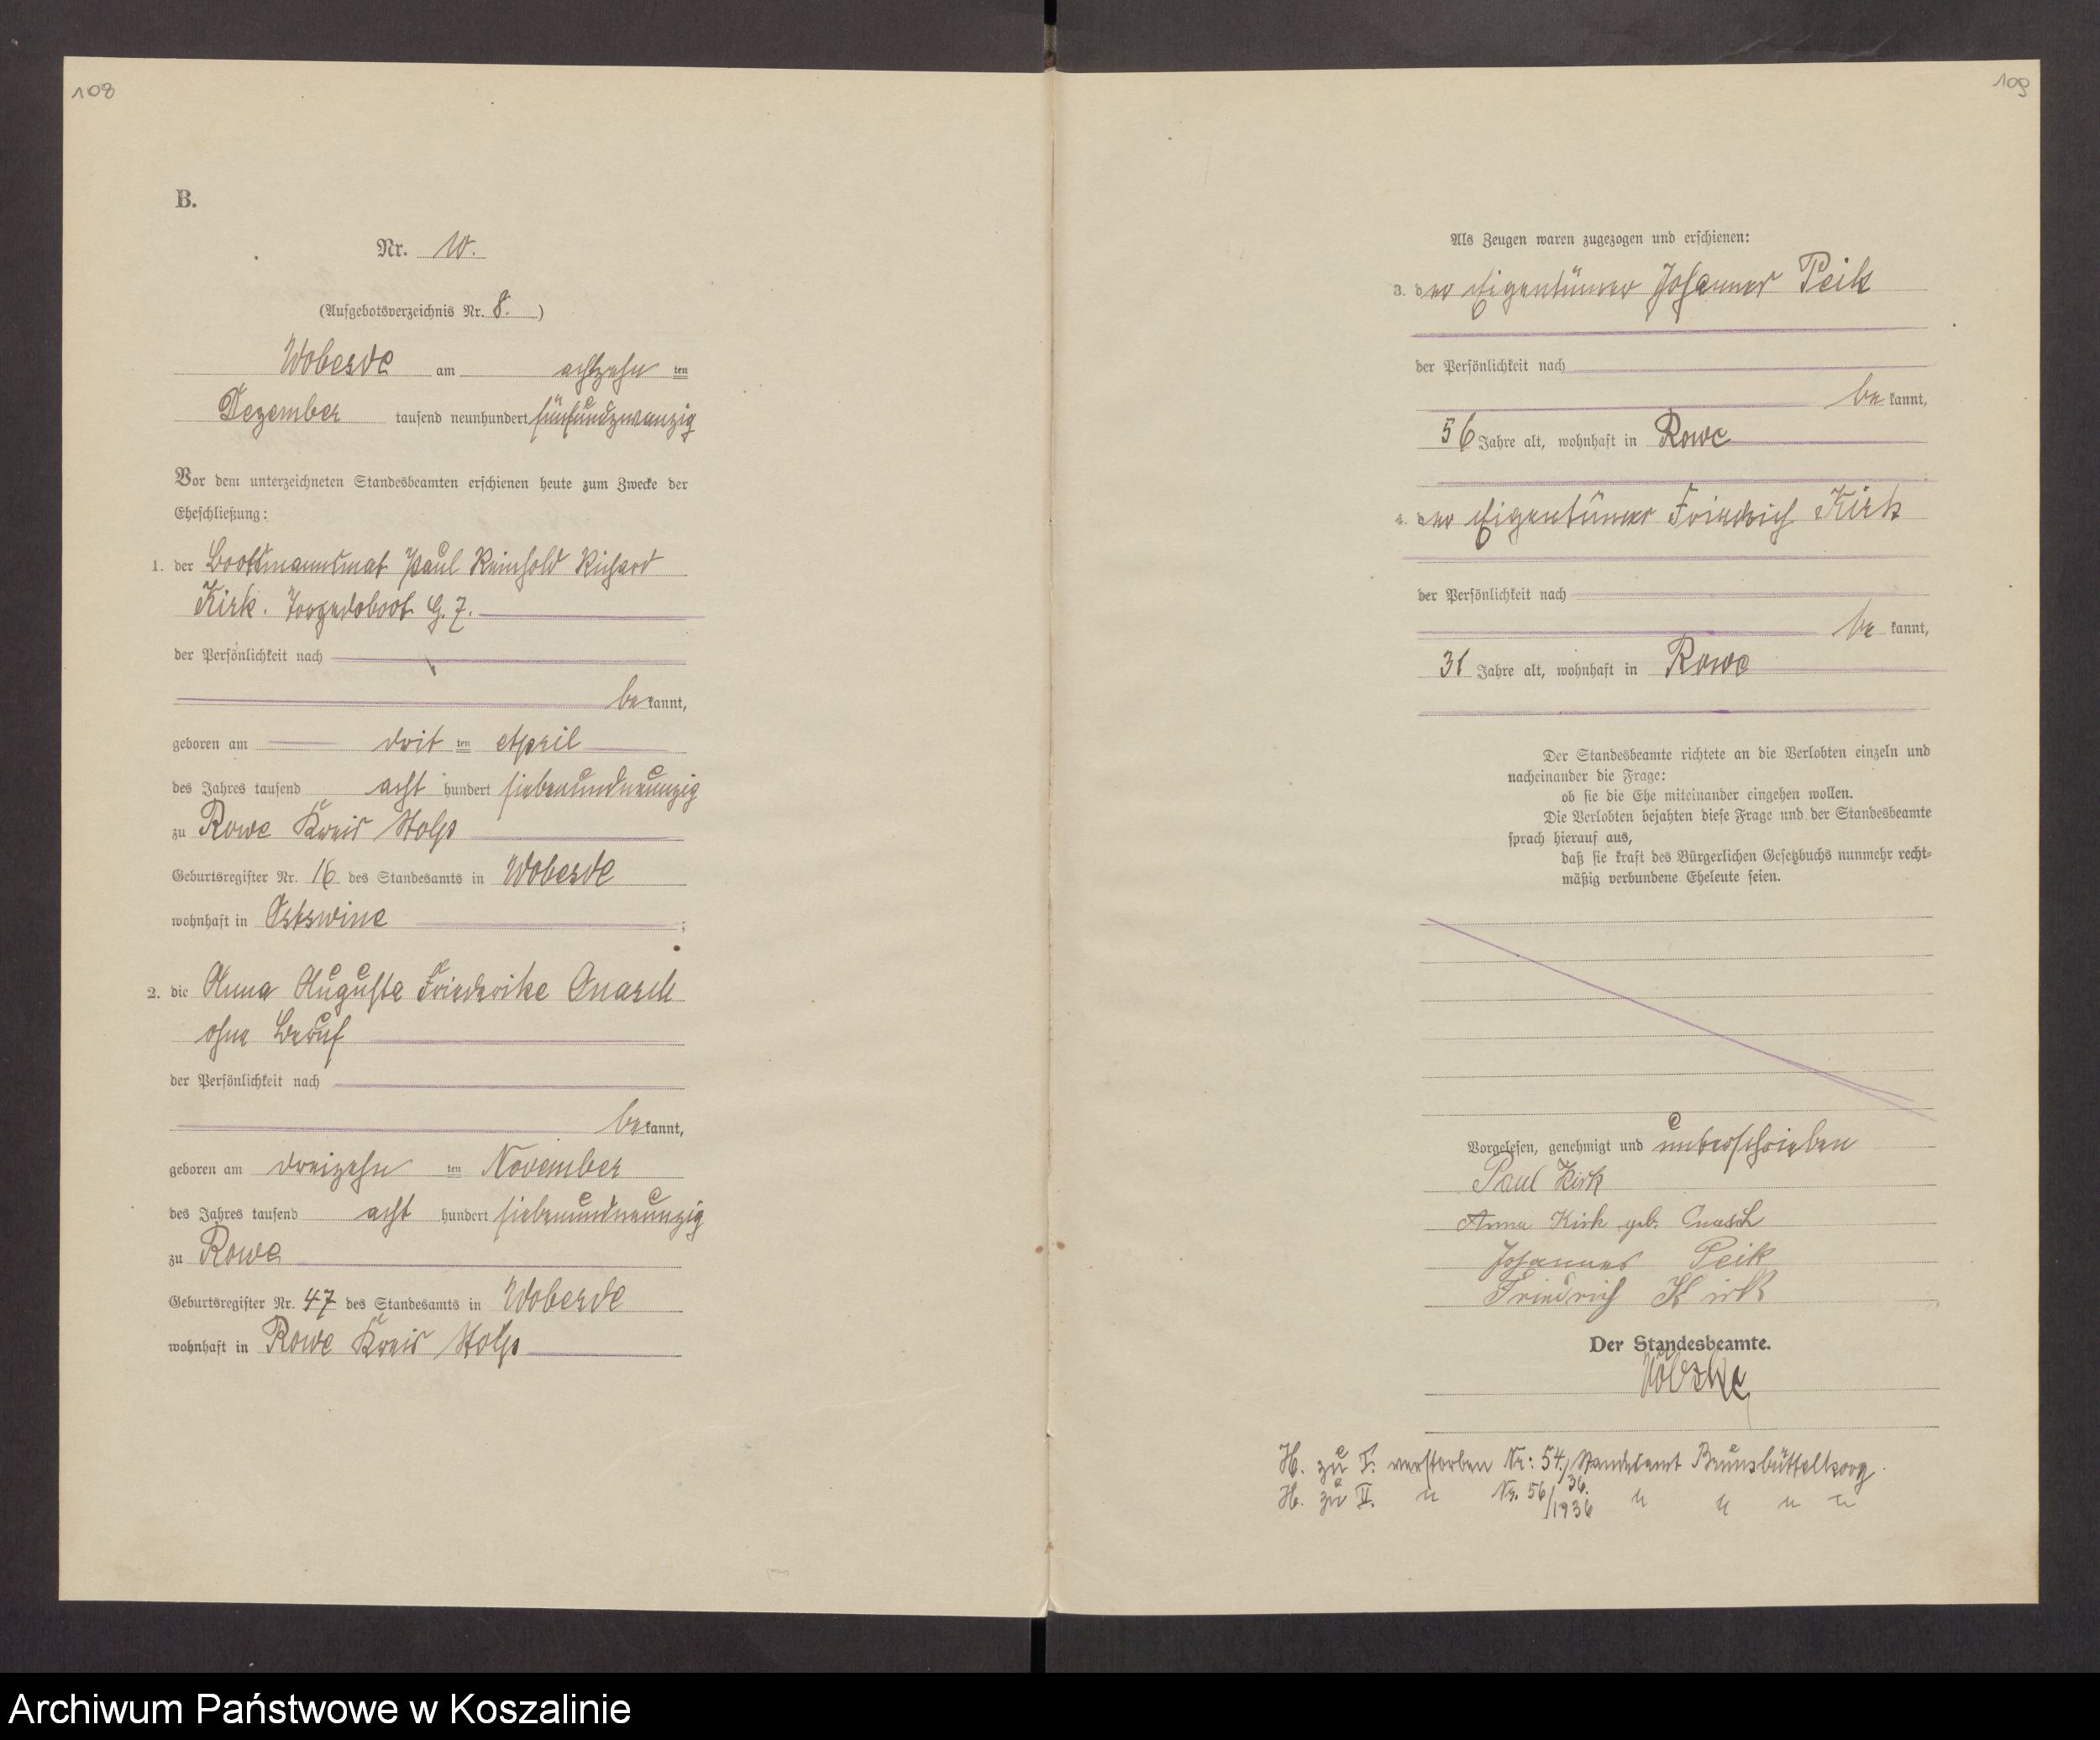 108
B.
Nr. 10.
(Aufgebotsverzeichnis Nr. 8. )
Wobesde am achtzehn ten
Dezember tausend neunhundert fünfundzwanzig
Vor dem unterzeichneten Standesbeamten erschienen heute zum Zwecke der
Eheschließung:
1. der Bootsmannsmat Paul Reinhold Richard
Kirk. Torpedoboot G. 7.
der Persönlichkeit nach
be kannt,
geboren am drit ten April
des Jahres tausend acht hundert siebenundneunzig
zu Rowe Kreis Stolp
Geburtsregister Nr. 16 des Standesamts in Wobesde
wohnhaft in Ostswine ;
2. die Anna Auguste Friederike Gnasch
ohne Beruf
der Persönlichkeit nach
be kannt,
geboren am dreizehn ten November
des Jahres tausend acht hundert siebenundneunzig
zu Rowe
Geburtsregister Nr. 47 des Standesamts in Wobesde
wohnhaft in Rowe Kreis Stolp
109
Als Zeugen waren zugezogen und erschienen:
3. der Eigentümer Johannes Peik
der Persönlichkeit nach
be kannt,
56 Jahre alt, wohnhaft in Rowe
4. der Eigentümer Friedrich Kirk
der Persönlichkeit nach
be kannt,
31 Jahre alt, wohnhaft in Rowe
Der Standesbeamte richtete an die Verlobten einzeln und
nacheinander die Frage:
ob sie die Ehe miteinander eingehen wollen.
Die Verlobten bejahten diese Frage und der Standesbeamte
sprach hierauf aus,
daß sie kraft des Bürgerlichen Gesetzbuchs nunmehr recht-
mäßig verbundene Eheleute seien.
Vorgelesen, genehmigt und unterschrieben
Paul Kirk
Anna Kirk geb. Gnasch
Johannes Peik
Friedrich Kirk
Der Standesbeamte.
H. zu I. verstorben Nr: 54./36. Standesamt Brunsbüttelkoog.
H. zu II. " Nr. 56/1936 " " " "
Archiwum Państwowe w Koszalinie